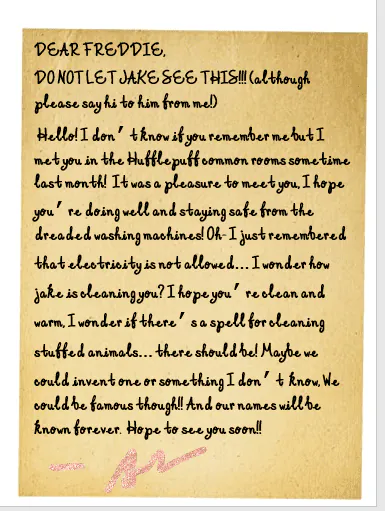 DEAR FREDDIE,
DO NOT LET JAKE SEE THIS!!! (although
please say hi to him from me!)
Hello! I don't know if you remember me but I
met you in the Hufflepuff common rooms sometime
last month! It was a pleasure to meet you, I hope
you're doing well and staying safe from the
dreaded washing machines! Oh- I just remembered
that electricity is not allowed... I wonder how
jake is cleaning you? I hope you're clean and
warm, I wonder if there's a spell for cleaning
stuffed animals... there should be! Maybe we
could invent one or something I don't know, We
could be famous though!! And our names will be
known forever. Hope to see you soon!!